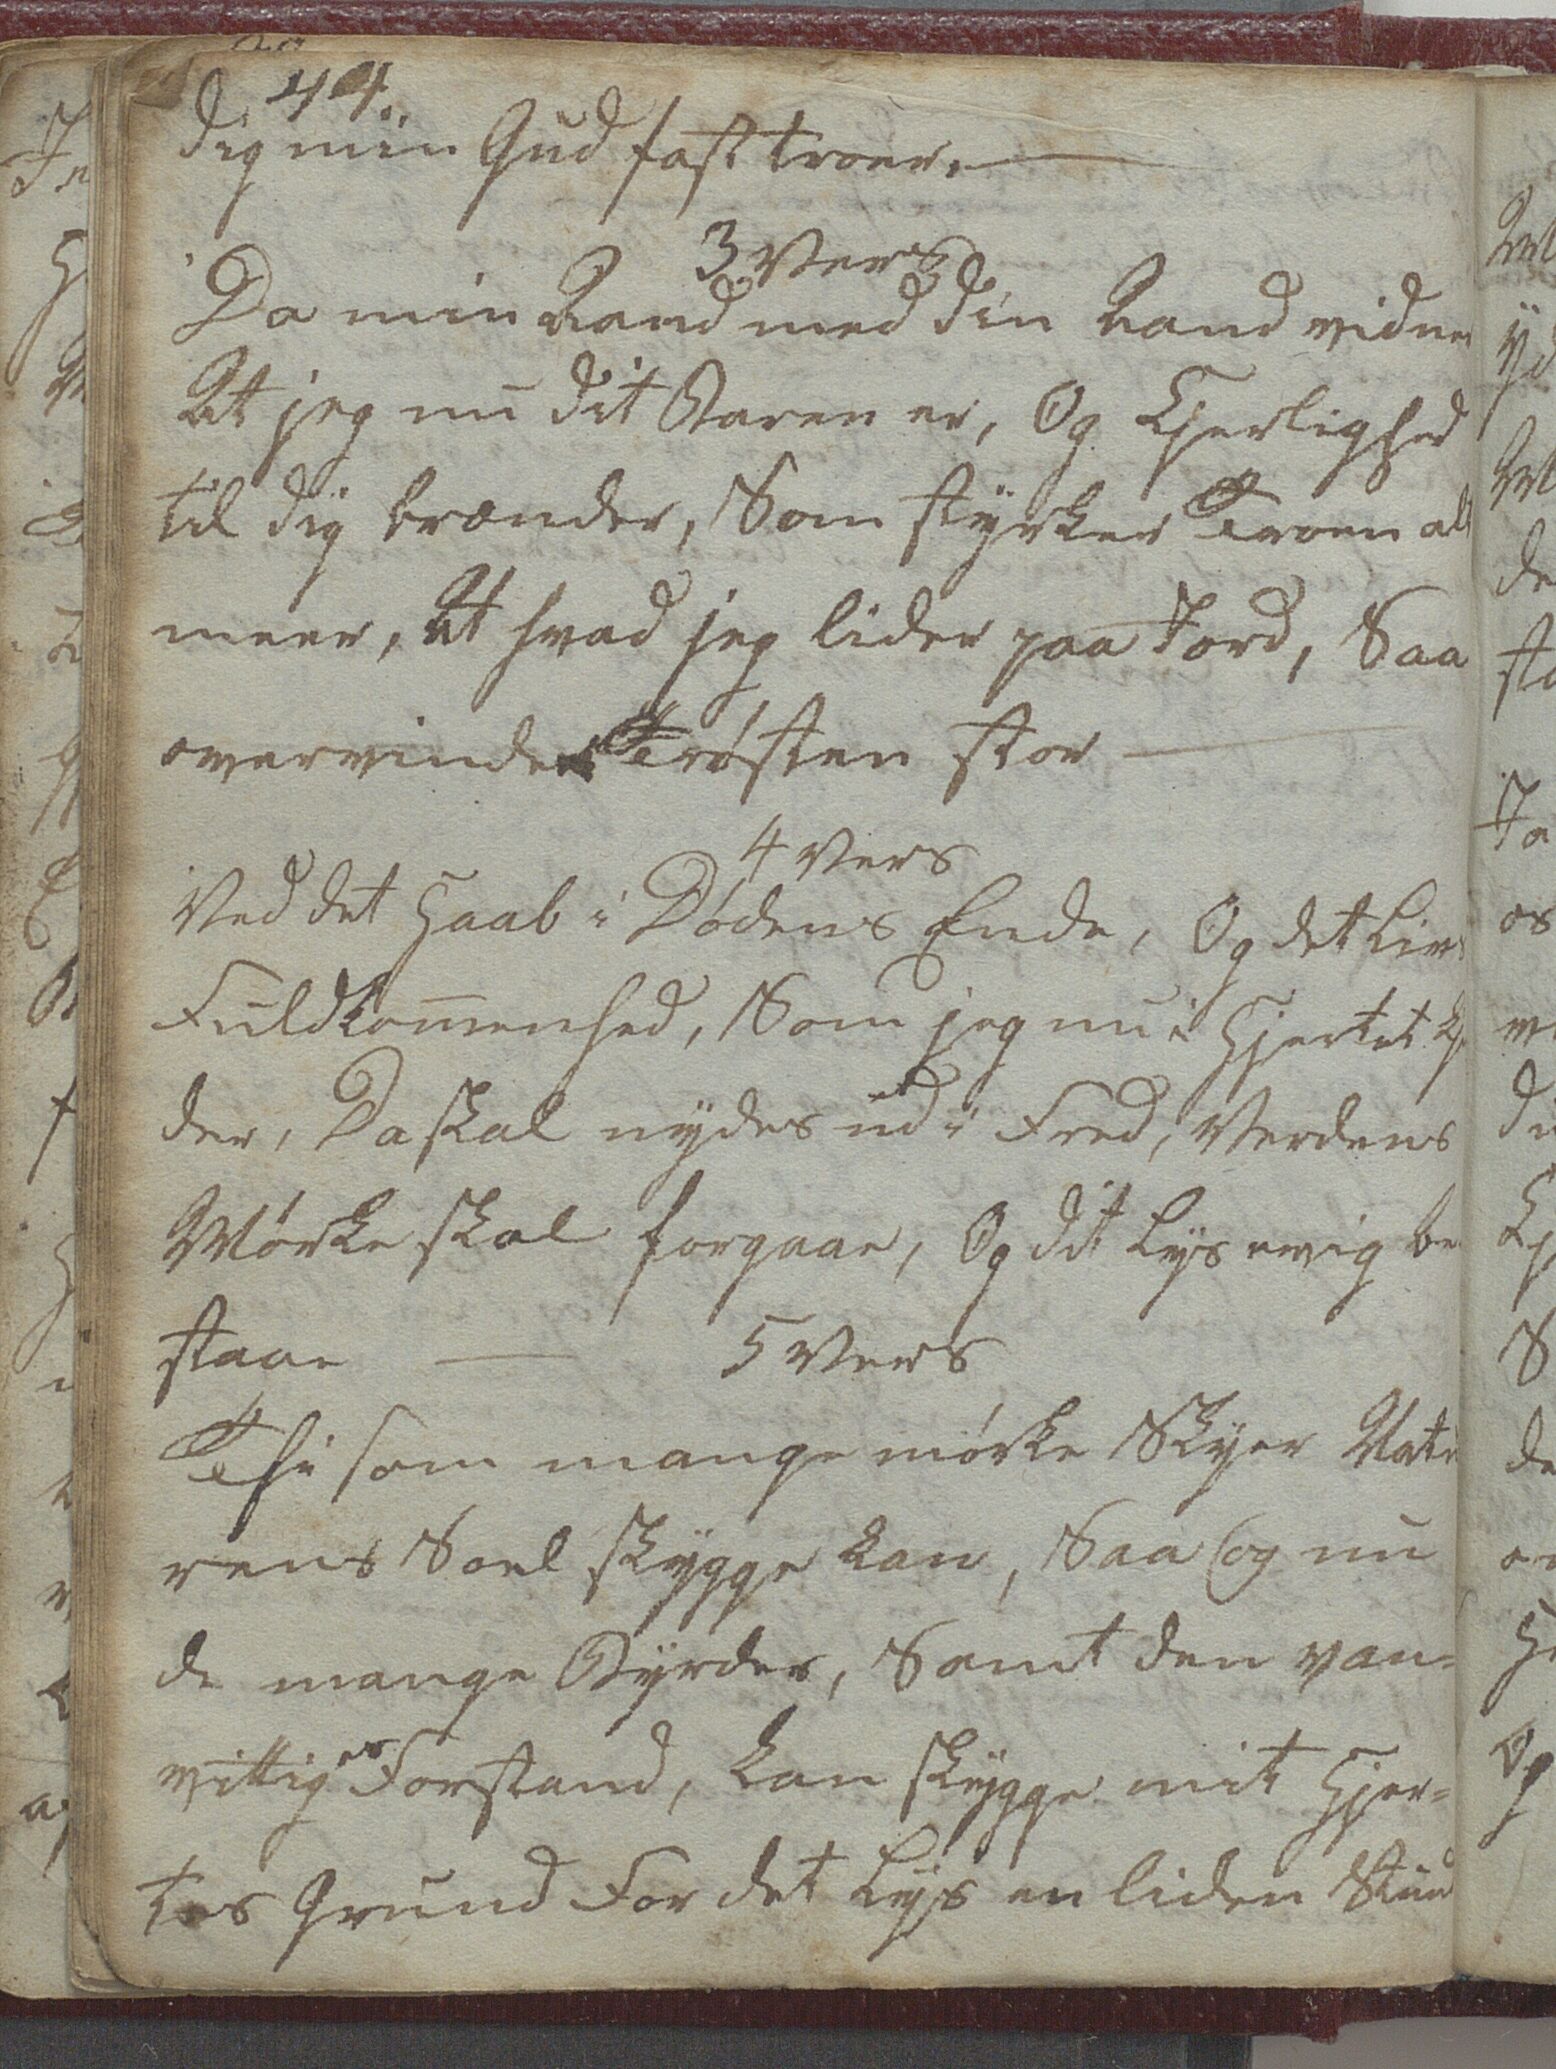 44.
dig min Gud fast troer.
3 Vers
Da min Aand med din Aand vidner
At jeg nu dit Baren er, Og Kjerlighed
til dig brænder, Som styrker Troen alt
meer, At hvad jeg lider paa Jord, Saa
overvinder Trøsten stor
4 Vers
Ved det Haab i Dødens Ende, Og det Livs
Fuldkommenhed, Som jeg nu i Hjertet kj
der, Da skal nydes ud i Fred, Verdens
Mørke skal forgaae, Og dit Lys evig be
staae
5 Vers
Thi som mange mørke Skyer Natu
rens Soel skygge kan, Saa og nu
de mange Byrder, Samt den van-
vittiges Forstand, kan skygge mit Hjer-
tes Grund For det Lys en liden Stund